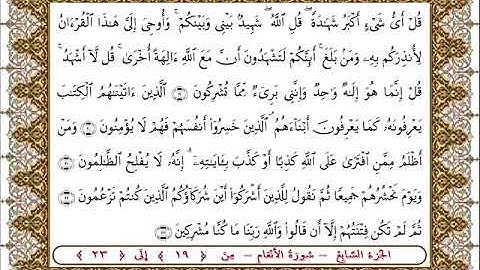 قُلْ أَىُّ شَىْءٍ أَكْبَرُ شَهَٰدَةً ۖ قُلِ ٱللَّهُ ۖ شَهِيدٌۢ بَيْنِى وَبَيْنَكُمْ ۚ وَأُوحِىَ إِلَىَّ هَٰذَا ٱلْقُرْءَانُ
لِأُنذِرَكُم بِهِۦ وَمَنۢ بَلَغَ ۚ أَئِنَّكُمْ لَتَشْهَدُونَ أَنَّ مَعَ ٱللَّهِ ءَالِهَةً أُخْرَىٰ ۚ قُل لَّآ أَشْهَدُ ۚ
قُلْ إِنَّمَا هُوَ إِلَٰهٌ وَٰحِدٌ وَإِنَّنِى بَرِىٓءٌ مِّمَّا تُشْرِكُونَ ۝١٩ ٱلَّذِينَ ءَاتَيْنَٰهُمُ ٱلْكِتَٰبَ
يَعْرِفُونَهُۥ كَمَا يَعْرِفُونَ أَبْنَآءَهُمُ ۘ ٱلَّذِينَ خَسِرُوٓا۟ أَنفُسَهُمْ فَهُمْ لَا يُؤْمِنُونَ ۝٢٠ وَمَنْ
أَظْلَمُ مِمَّنِ ٱفْتَرَىٰ عَلَى ٱللَّهِ كَذِبًا أَوْ كَذَّبَ بِـَٔايَٰتِهِۦٓ ۗ إِنَّهُۥ لَا يُفْلِحُ ٱلظَّٰلِمُونَ ۝٢١
وَيَوْمَ نَحْشُرُهُمْ جَمِيعًا ثُمَّ نَقُولُ لِلَّذِينَ أَشْرَكُوٓا۟ أَيْنَ شُرَكَآؤُكُمُ ٱلَّذِينَ كُنتُمْ تَزْعُمُونَ ۝٢٢
ثُمَّ لَمْ تَكُن فِتْنَتُهُمْ إِلَّآ أَن قَالُوا۟ وَٱللَّهِ رَبِّنَا مَا كُنَّا مُشْرِكِينَ ۝٢٣
الجزء السابع – سورة الأنعام – من ﴿ ١٩ ﴾ إلى ﴿ ٢٣ ﴾